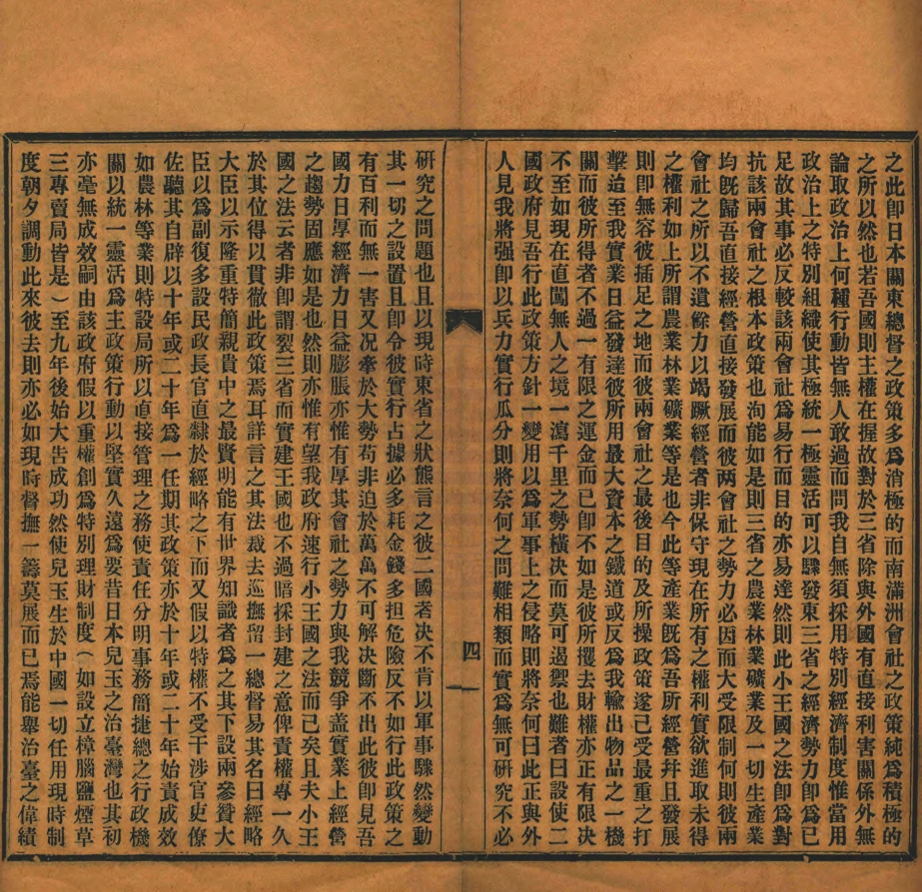 之此卽日本關東總督之政策多爲消極的而南滿洲會社之政策純爲積極的
之所以然也若吾國則主權在握故對於三省除與外國有直接利害關係外無
論取政治上何種行動皆無人敢過而問我自無須採用特別經濟制度惟當用
政治上之特別組織使其極統一極靈活可以驟發東三省之經濟勢力卽爲已
足故其事必反較該兩會社爲易行而目的亦易達然則此小王國之法卽爲對
抗該兩會社之根本政策也洵能如是則三省之農業林業礦業及一切生產業
均旣歸吾直接經營直接發展而彼两會社之勢力必因而大受限制何則彼兩
會社之所以不遺餘力以竭蹶經營者非保守現在所有之權利實欲進取未得
之權利如上所謂農業林業礦業等是也今此等產業旣爲吾所經營幷且發展
則卽無容彼插足之地而彼兩會社之最後目的及所操政策遂已受最重之打
擊迨至我實業日益發達彼所用最大資本之鐵道或反爲我輸出物品之一機
關而彼所得者不過一有限之運金而已卽不如是彼所攫去財權亦正有限决
不至如現在直闖無人之境一瀉千里之勢橫决而莫可遏禦也難者曰設使二
國政府見吾行此政策方針一變用以爲軍事上之侵略則將奈何曰此正與外
人見我將强卽以兵力實行瓜分則將奈何之問難相類而實爲無可硏究不必
四
硏究之問題也且以現時東省之狀態言之彼二國者决不肯以軍事驟然變動
其一切之設置且卽令彼實行占據必多耗金錢多担危險反不如行此政策之
有百利而無一害又况牽於大勢苟非迫於萬萬不可解决斷不出此彼卽見吾
國力日厚經濟力日益膨脹亦惟有厚其會社之勢力與我競爭盖實業上經營
之趨勢固應如是也然則亦惟有望我政府速行小王國之法而已矣且夫小王
國之法云者非卽謂裂三省而實建王國也不過暗採封建之意俾責權專一久
於其位得以貫徹此政策焉耳詳言之其法裁去巡撫留一總督易其名曰經略
大臣以示隆重特簡親貴中之最賢明能有世界知識者爲之其下設兩參贊大
臣以爲副復多設民政長官直隸於經略之下而又假以特權不受干涉官吏僚
佐聽其自辟以十年或二十年爲一任期其政策亦於十年或二十年始責成效
如農林等業則特設局所以直接管理之務使責任分明事務簡捷總之行政機
關以統一靈活爲主政策行動以堅實久遠爲要昔日本兒玉之治臺灣也其初
亦毫無成效嗣由該政府假以重權創爲特別理財制度（如設立樟腦鹽煙草
三專賣局皆是）至九年後始大告成功然使兒玉生於中國一切任用現時制
度朝夕調動此來彼去則亦必如現時督撫一籌莫展而已焉能舉治臺之偉績